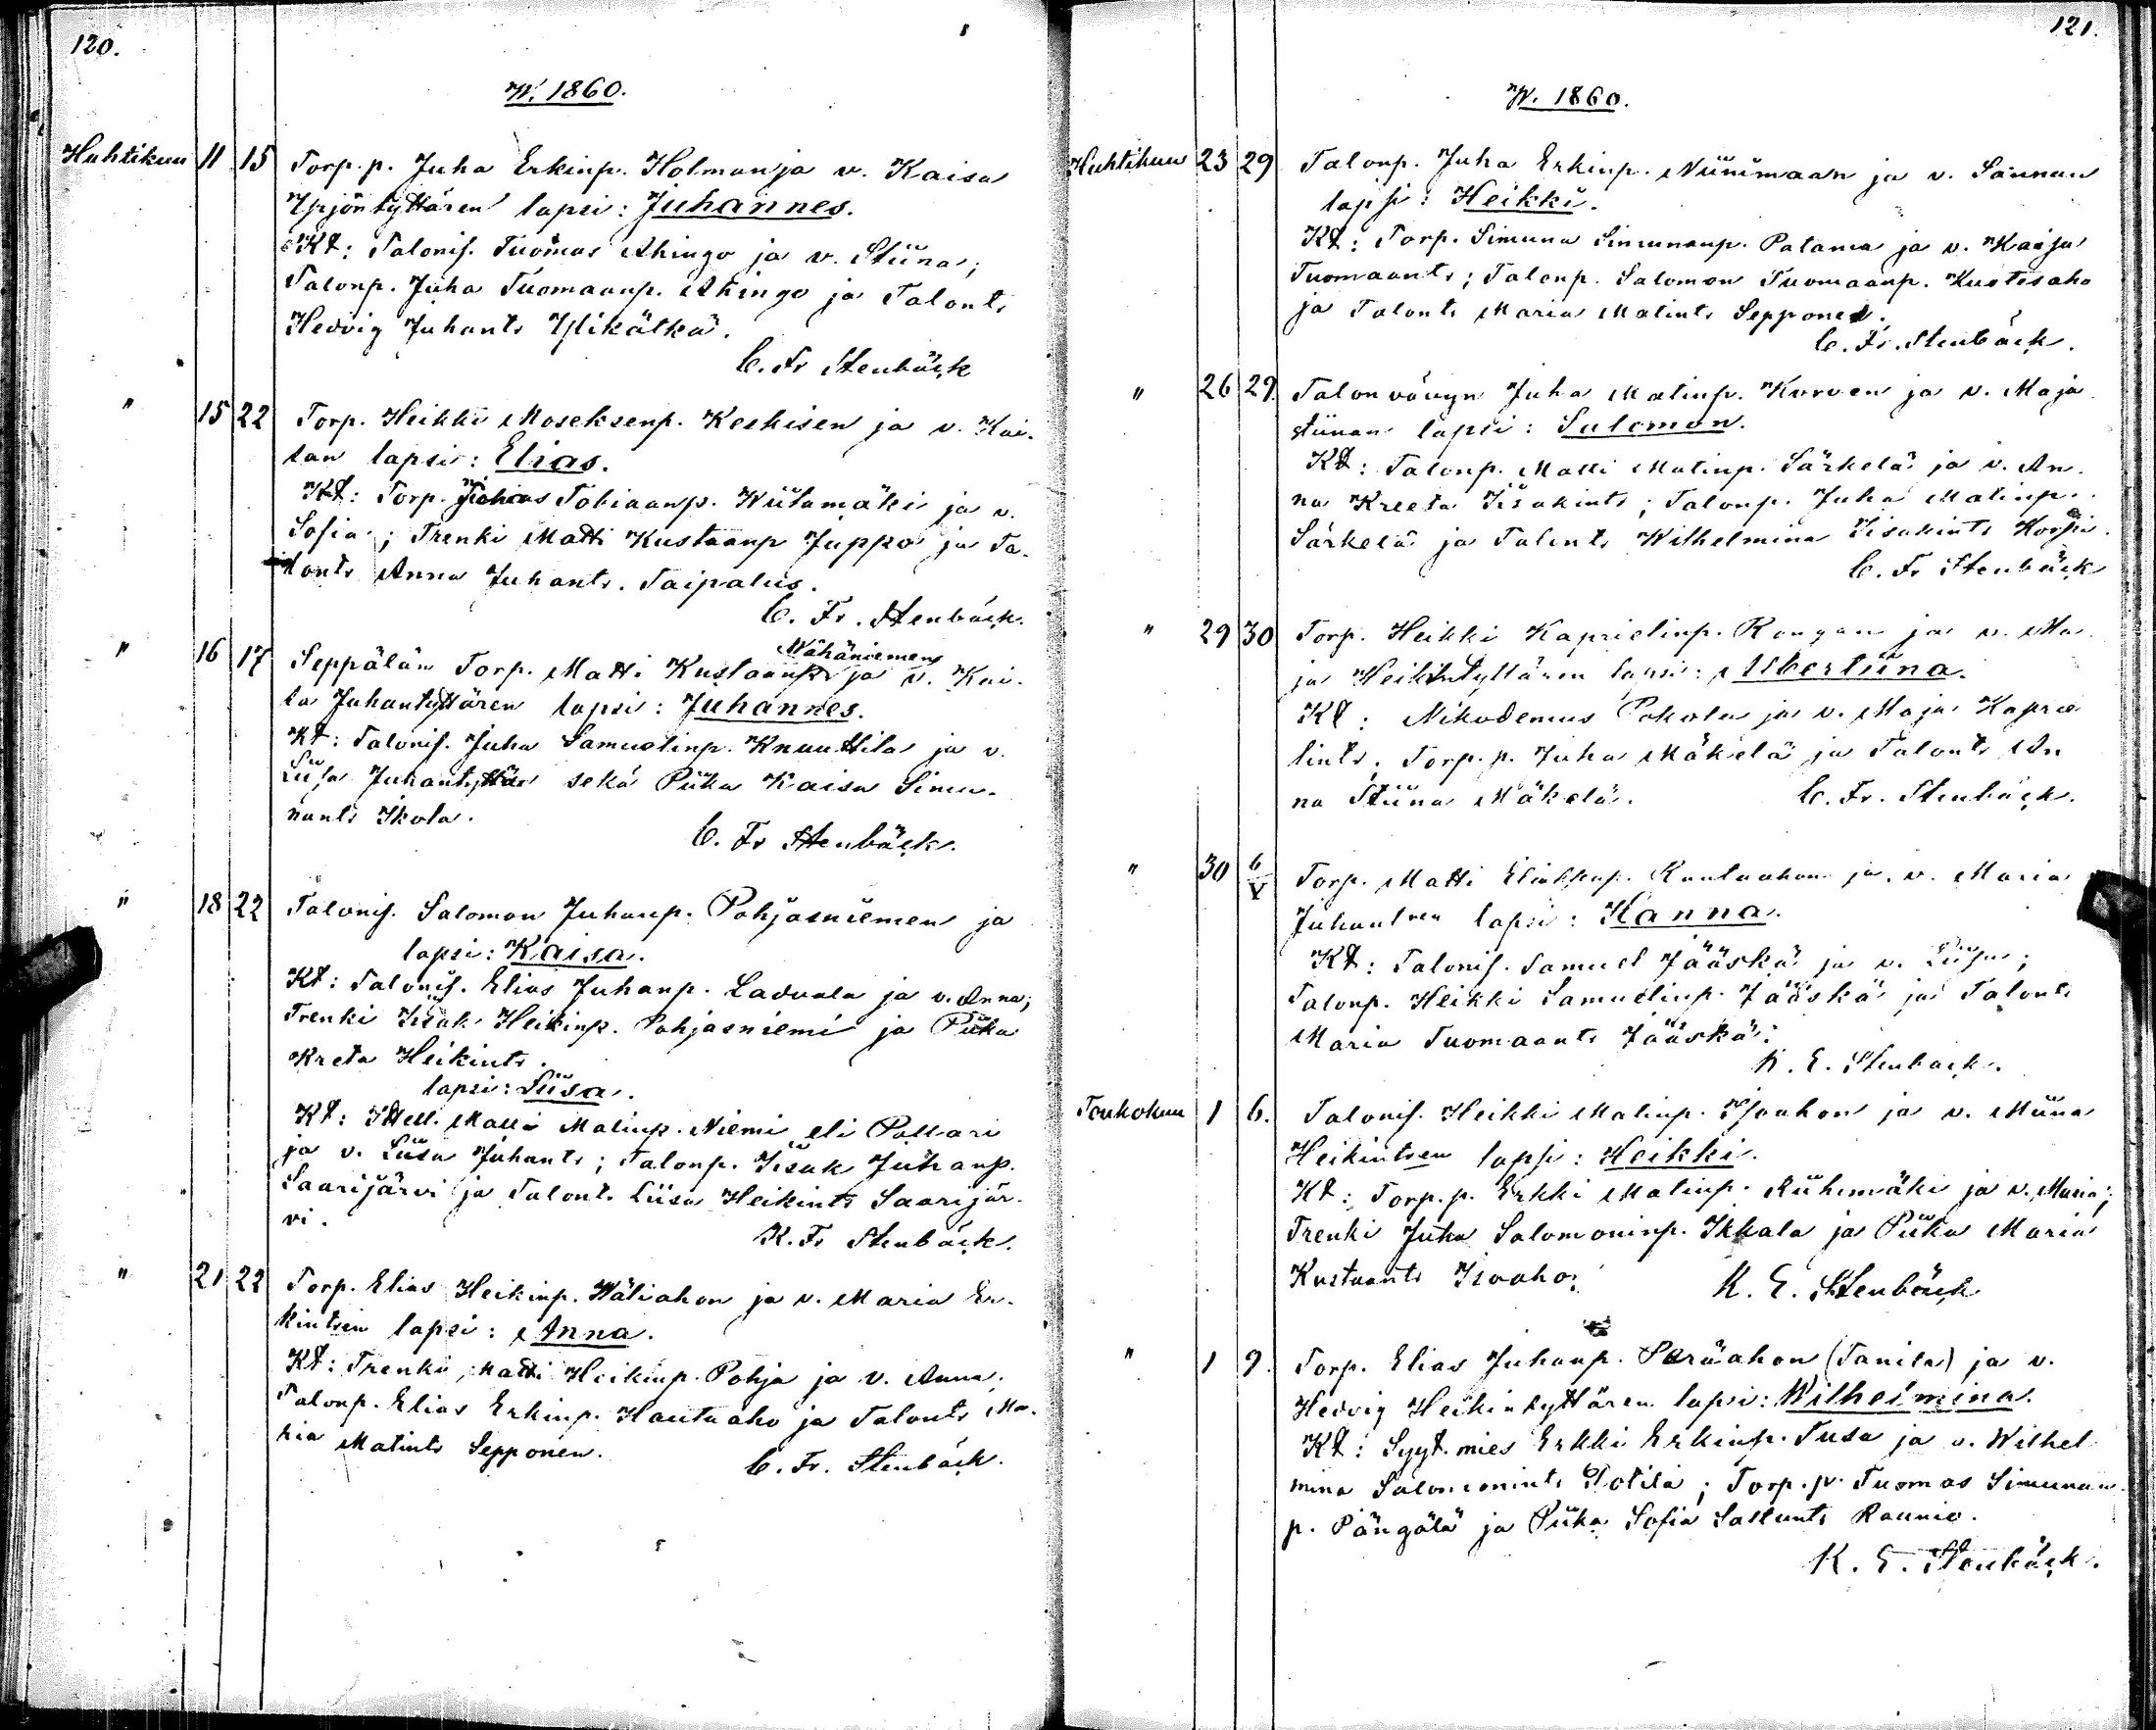 120.
W. 1860.
Huhtikuu 11 15 Torp. p. Juha Erkinp. Holman ja v. Kaisa
Yrjöntyttären lapsi: Juhannes.
Kt: Talonis. Tuomas Ahingo ja v. Stiina;
Talonp. Juha Tuomaanp. Ahingo ja Talont.
Hedvig Juhants Ylikätkä.
C. Fr Stenbäck
" 15 22 Torp. Heikki Moseksenp. Keskisen ja v. Kai-
san lapsi: Elias.
Kt: Torp. Tobiaanp. Wiitamäki ja v.
Sofia; Trenki Matti Kustaanp Juppo ja Ta-
lonts Anna Juhants. Taipalus.
C. Fr. Stenbäck.
" 16 17 Seppälän Torp. Matti Kustaanp Wähäniemen ja v. Kai-
sa Juhantyttären lapsi: Juhannes.
Kt: Talonis. Juha Samuelinp. Knuuttila ja v.
Liisa Juhantyttär sekä Piika Kaisa Simu-
nants Ikola.
C. Fr Stenbäck.
" 18 22 Talonis. Salomon Juhanp. Pohjasniemen ja
lapsi: Kaisa.
Kt: Talonis. Elias Juhanp. Laduala ja v. Anna;
Trenki Iisak Heikinp. Pohjasniemi ja Piika
Kreta Heikints.
lapsi: Liisa.
Kt: Itsell. Matti Matinp. Niemi eli Pollari
ja v. Liisa Juhants; Talonp. Iisak Juhanp.
Saarijärvi ja Talont. Liisa Heikints Saarijär-
vi.
K. Fr Stenbäck.
" 21 22 Torp. Elias Heikinp. Wäliahon ja v. Maria Er-
kintsen lapsi: Anna.
Kt: Trenki Matti Heikinp. Pohja ja v. Anna;
Talonp. Elias Erkinp. Hautaaho ja Talonts Ma-
ria Matints Sepponen.
C. Fr. Stenbäck.
121.
W. 1860.
Huhtikuu 23 29 Talonp. Juha Erkinp. Niinimaan ja v. Sannan
lapsi: Heikki.
Kt: Torp. Simuna Simunanp. Patana ja v. Kaisa
Tuomaants; Talonp. Salomon Tuomaanp. Kuotesaho
ja Talonts Maria Matints Sepponen.
C. Fr. Stenbäck.
" 26 29 Talon vävyn Juha Matinp. Kurven ja v. Maja
Stiinan lapsi: Salomon.
Kt: Talonp. Matti Matinp. Särkelä ja v. An-
na Kreeta Iisakints; Talonp. Juha Matinp.
Särkelä ja Talonts Wilhelmina Iisakints Korpi.
C. Fr Stenbäck
" 29 30 Torp. Heikki Kaprielinp. Rongan ja v. Ma-
ja Heikintyttären lapsi: Albertiina.
Kt: Nikodemus Pokela ja v. Maja Kaprie
lints; Torp. p. Juha Mäkelä ja Talonts An
na Stiina Mäkelä. C. Fr. Stenbäck.
" 30 6/V Torp. Matti Eliaksenp. Rantaahon ja v. Maria
Juhantren lapsi: Hanna.
Kt: Talonis. Samuel Jääskä ja v. Liisa;
Talonp. Heikki Samuelinp. Jääskä ja Talont.
Maria Tuomaants Jääskä.
K. E. Stenbäck.
Toukokuu 1 6. Talonis. Heikki Matinp. Isoahon ja v. Miina
Heikintsen lapsi: Heikki.
Kt: Torp. p. Erkki Matinp. Riihimäki ja v. Maria;
Trenki Juha Salomoninp. Ikkala ja Piika Maria
Kustaants Isoaho. K. E. Stenbäck
" 1 9. Torp. Elias Juhanp. Peräahon (Tanila) ja v.
Hedvig Heikintyttären lapsi: Wilhelmina.
Kt: Syyt. mies Erkki Erkinp. Tusa ja v. Wilhel
mina Salomonints Potila; Torp. p. Tuomas Simunan
p. Pängälä ja Piika Sofia Raunio.
K. E. Stenbäck.